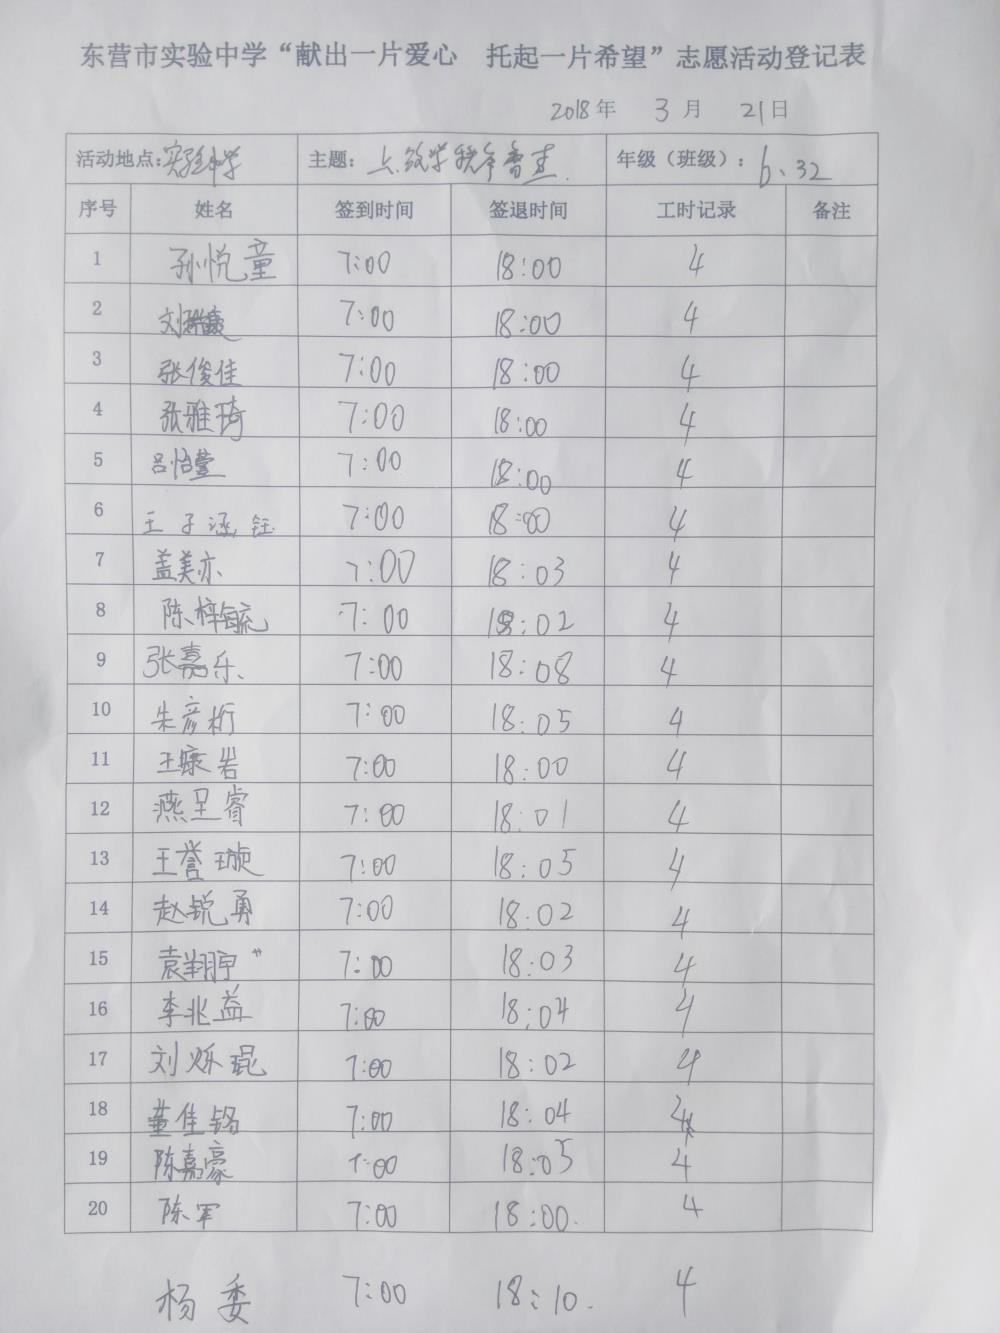 东营市实验中学“献出一片爱心 托起一片希望”志愿活动登记表
2018年 3月 21日
活动地点:实验中学 主题: 年级（班级）: 6.32
序号 姓名 签到时间 签退时间 工时记录 备注
1 孙悦童 7:00 18:00 4
2 刘 7:00 18:00 4
3 张俊佳 7:00 18:00 4
4 张雅琦 7:00 18:00 4
5 吕怡萱 7:00 18:00 4
6 王子涵钰 7:00 18:00 4
7 盖美亦 7:00 18:03 4
8 陈梓毓 7:00 18:02 4
9 张嘉乐 7:00 18:08 4
10 朱彦桁 7:00 18:05 4
11 王康岩 7:00 18:00 4
12 燕呈睿 7:00 18:01 4
13 王誉璇 7:00 18:05 4
14 赵锐勇 7:00 18:02 4
15 袁翔宇 7:00 18:03 4
16 李兆益 7:00 18:04 4
17 刘烁琨 7:00 18:02 4
18 董佳铭 7:00 18:04 4
19 陈嘉豪 7:00 18:05 4
20 陈军 7:00 18:00. 4
杨委 7:00 18:10. 4